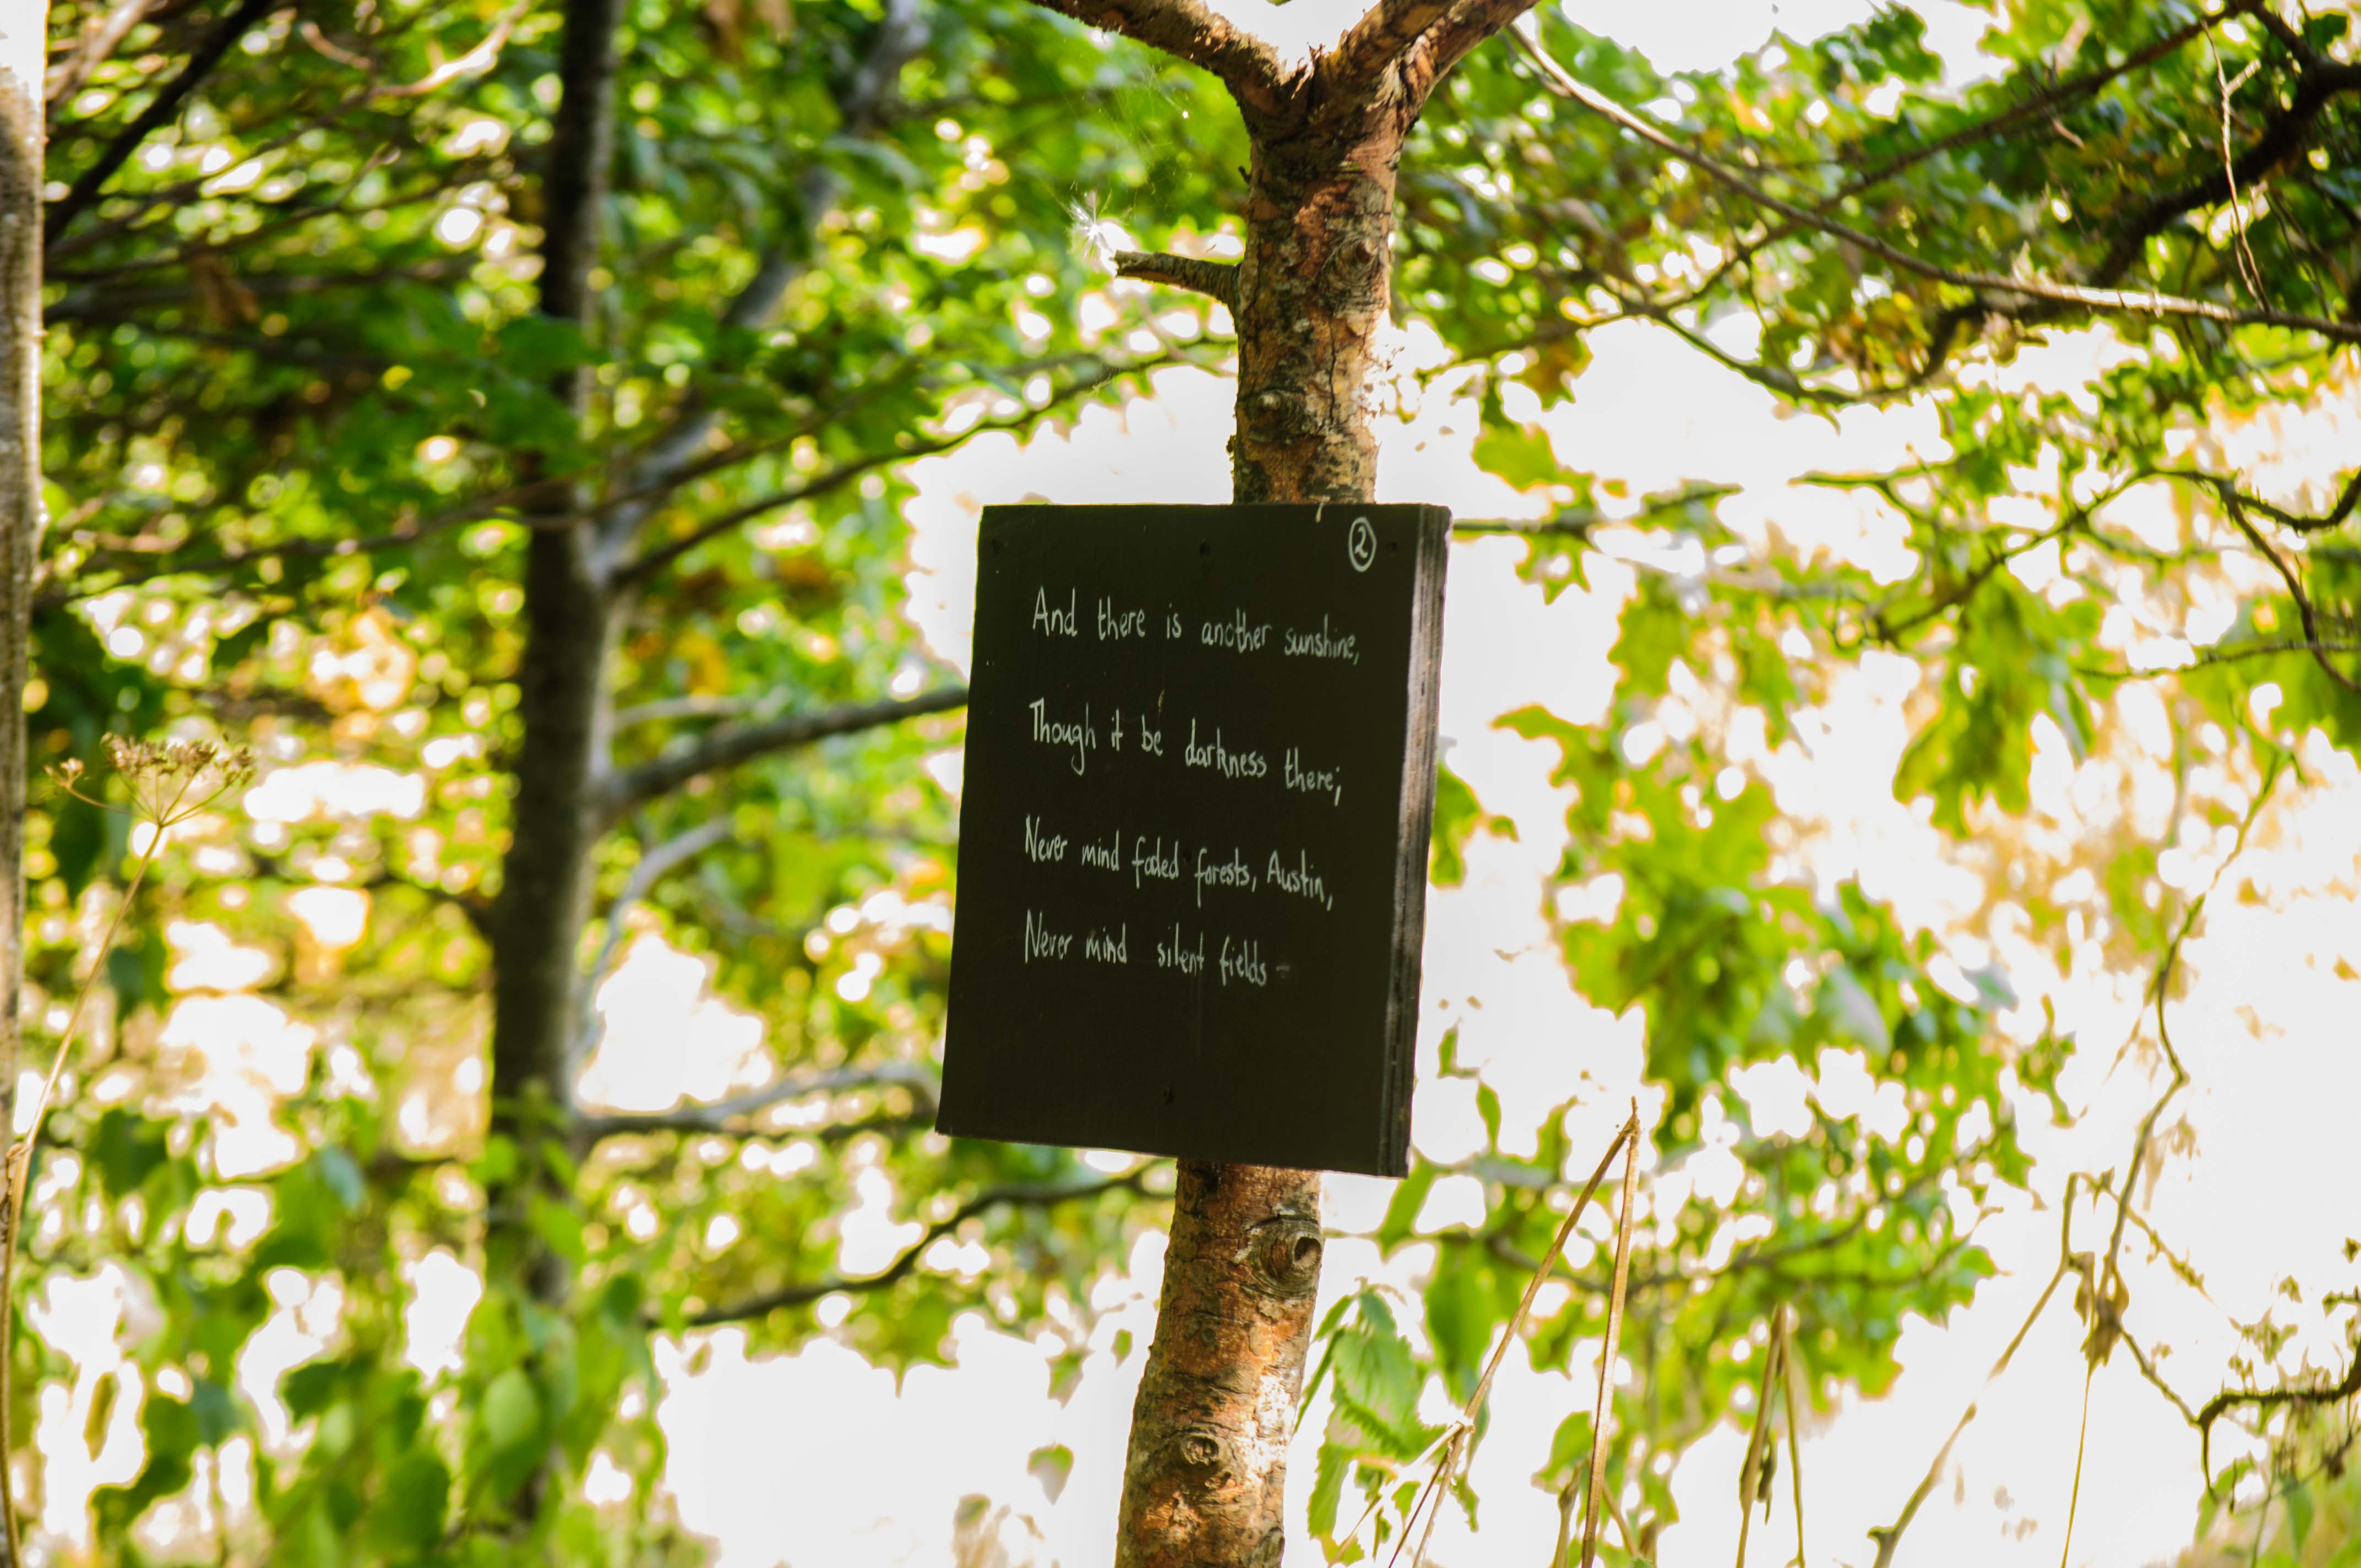 ②
And there is another sunshine,
Though it be darkness there;
Never mind faded forests, Austin,
Never mind silent fields -